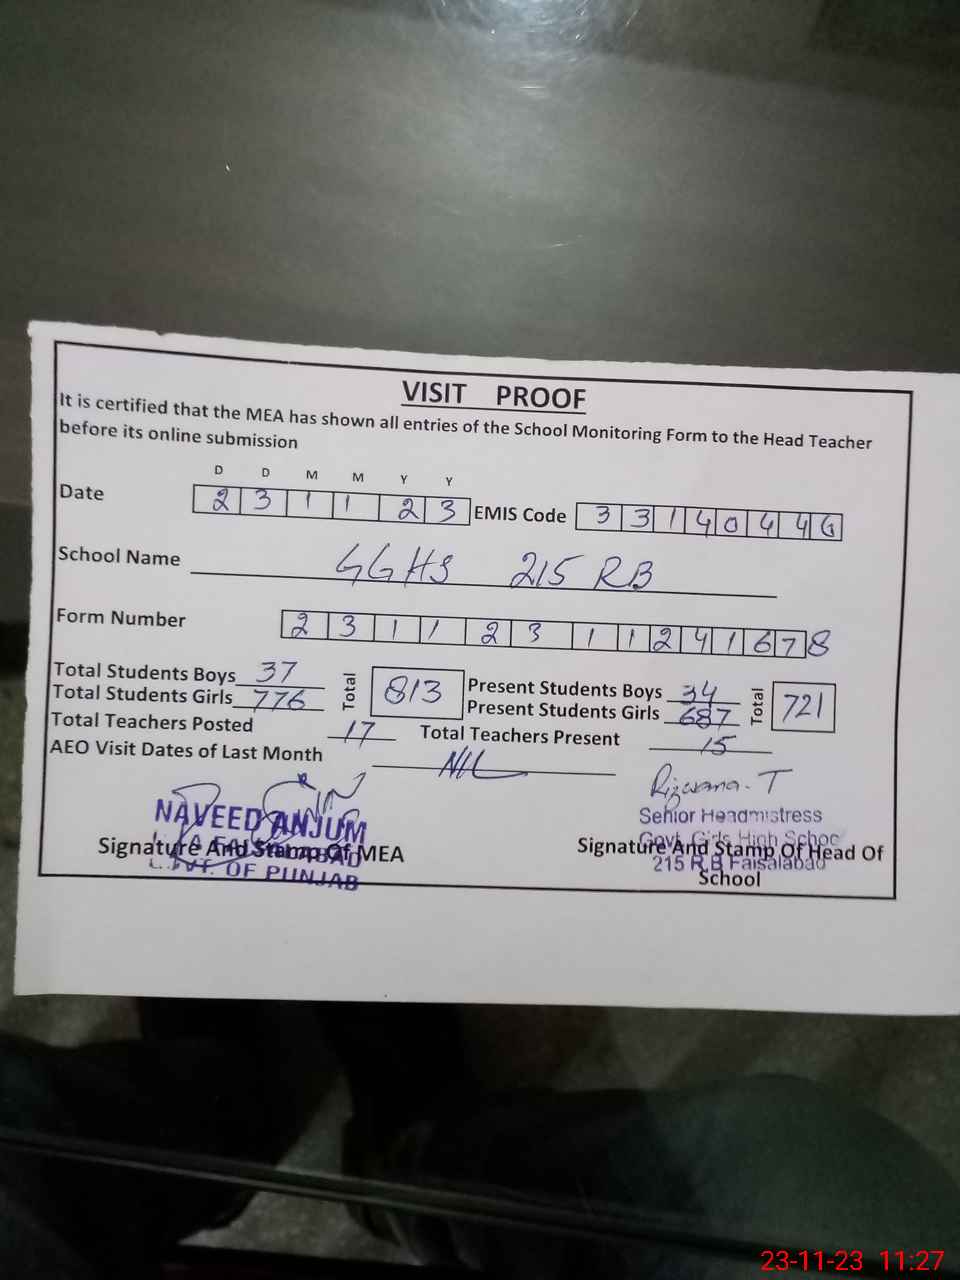 VISIT PROOF
It is certified that the MEA has shown all entries of the School Monitoring Form to the Head Teacher
before its online submission
D D M M Y Y
Date 2 3 1 1 2 3 EMIS Code 3 3 1 4 0 4 4 6
School Name GGHS 215 RB
Form Number 2 3 1 1 2 3 1 1 2 4 1 6 7 8
Total Students Boys 37 Total 813 Present Students Boys 34 Total 721
Total Students Girls 776 Present Students Girls 687
Total Teachers Posted 17 Total Teachers Present 15
AEO Visit Dates of Last Month Nil
Rizwana. T
NAVEED ANJUM
Senior Headmistress
Govt. Girls High Schoo
Signature And Stamp Of MEA
Signature And Stamp Of Head Of
School
215 R.B Faisalabad
OF PUNJAB
23-11-23 11:27